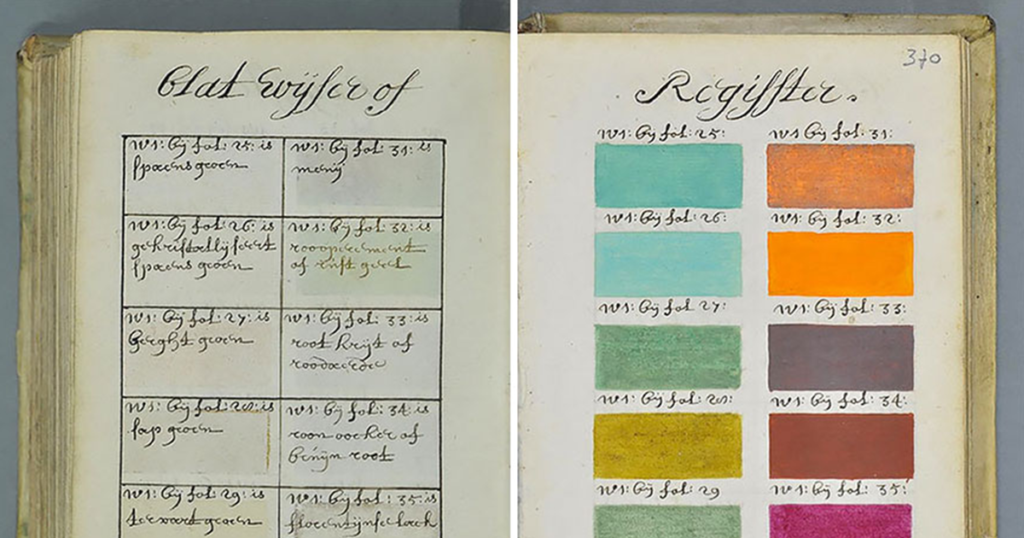 Blat Wÿser of
w1: bÿ fol: 25: is
spaens groen
w1: bÿ fol: 31: is
menÿ
w1: bÿ fol: 26: is
gekristallÿseert
spaens groen
w1: bÿ fol: 32: is
rooopercement
of rust geel
w1: bÿ fol: 27: is
berght groen
w1: bÿ fol: 33: is
root krÿt of
roodaerde
w1: bÿ fol: 28: is
sap groen
w1: bÿ fol: 34: is
roon oocker of
bruÿn root
w1: bÿ fol: 29: is
groen
w1: bÿ fol: 35: is
florentÿnse lack
370
Regisster.
w1: bÿ fol: 25:
w1 bÿ fol: 31:
w1: bÿ fol: 26:
w1: bÿ fol: 32:
w1: bÿ fol: 27:
w1: bÿ fol: 33:
w1: bÿ fol: 28:
w1: bÿ fol: 34:
w1: bÿ fol: 29
w1: bÿ fol: 35: